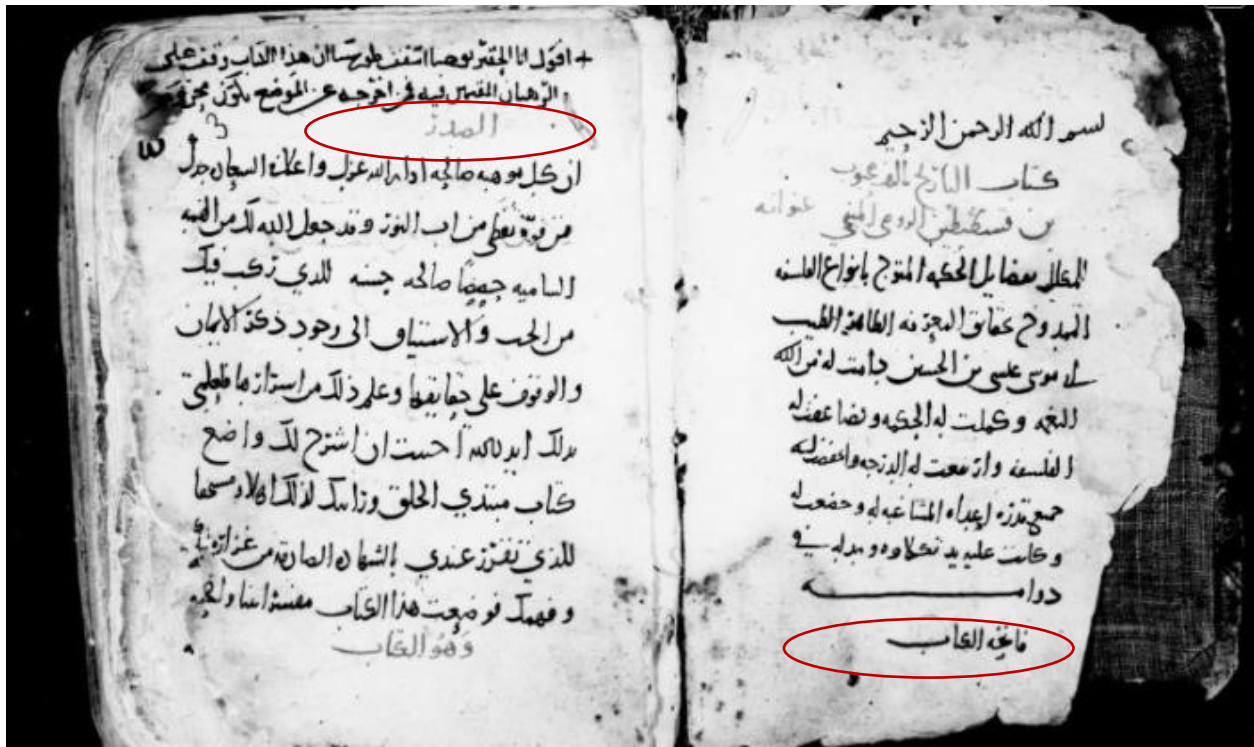 بسم الله الرحمن الرحيم
كتاب التاريخ تاليف محبوب
بن قسطنطين الرومي المنبجي عنوانه
المكلل بفضايل الحكمه المتوج بانواع الفلسفه
الممدوح بحقايق المعرفه الطاهر الطيب
ابي موسى عيسى بن الحسين دامت له من الله
النعمه وكملت له الحكمه وتضاعفت له
الفلسفه وارتفعت له الدرجه
جميع اعداه المشاغبه له وخضعت له
وكانت عليه يد تكلاوه في
دوامه
فاتحه الكتاب
+ اقول انا الحقير يوحنا اسقف طور سينا ان هذا الكتاب وقف على
الرهبان المقيمين فيه فمن اخرجه عن الموضع يكون محروم
الصدر
ان كل موهبه صالحه
من فوق تعطى من اب النور وقد جعل الله لك من
الساميه حصصا صالحه حسنه للذي ركب فيك
من الحب والاستياق الى وجود ذكر الايمان
والوقوف على حقايقها وعلم ذلك من اسرارها
بذلك احببت ان اشرح لك واضع
كتاب مبتدي الخلق ورايتك لذلك اهلا ومستحقا
للذي تقرر عندي بالشهاده الصادقه من
وفهمك فوضعت هذا الكتاب
وهو الكتاب